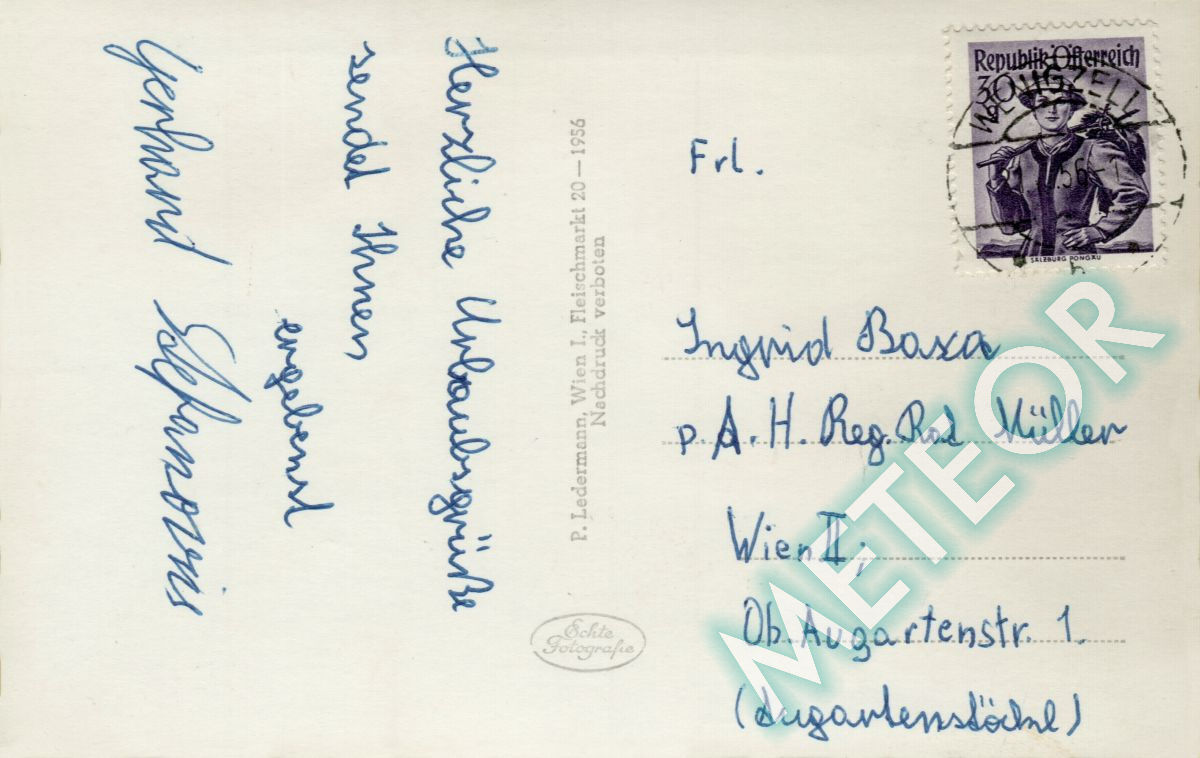 Herzliche Urlaubsgrüße
sendet Ihnen
ergebenst
Gerhard
P. Ledermann, Wien I., Fleischmarkt 20 — 1956
Nachdruck verboten
Echte
Fotografie
Republik Österreich
30
SALZBURG PONGAU
WENIGZELL
56
Frl.
Ingrid Baxa
p. A. H. Reg. Rat Müller
Wien II;
Ob. Augartenstr. 1.
(Augartenstöckl)
METEOR